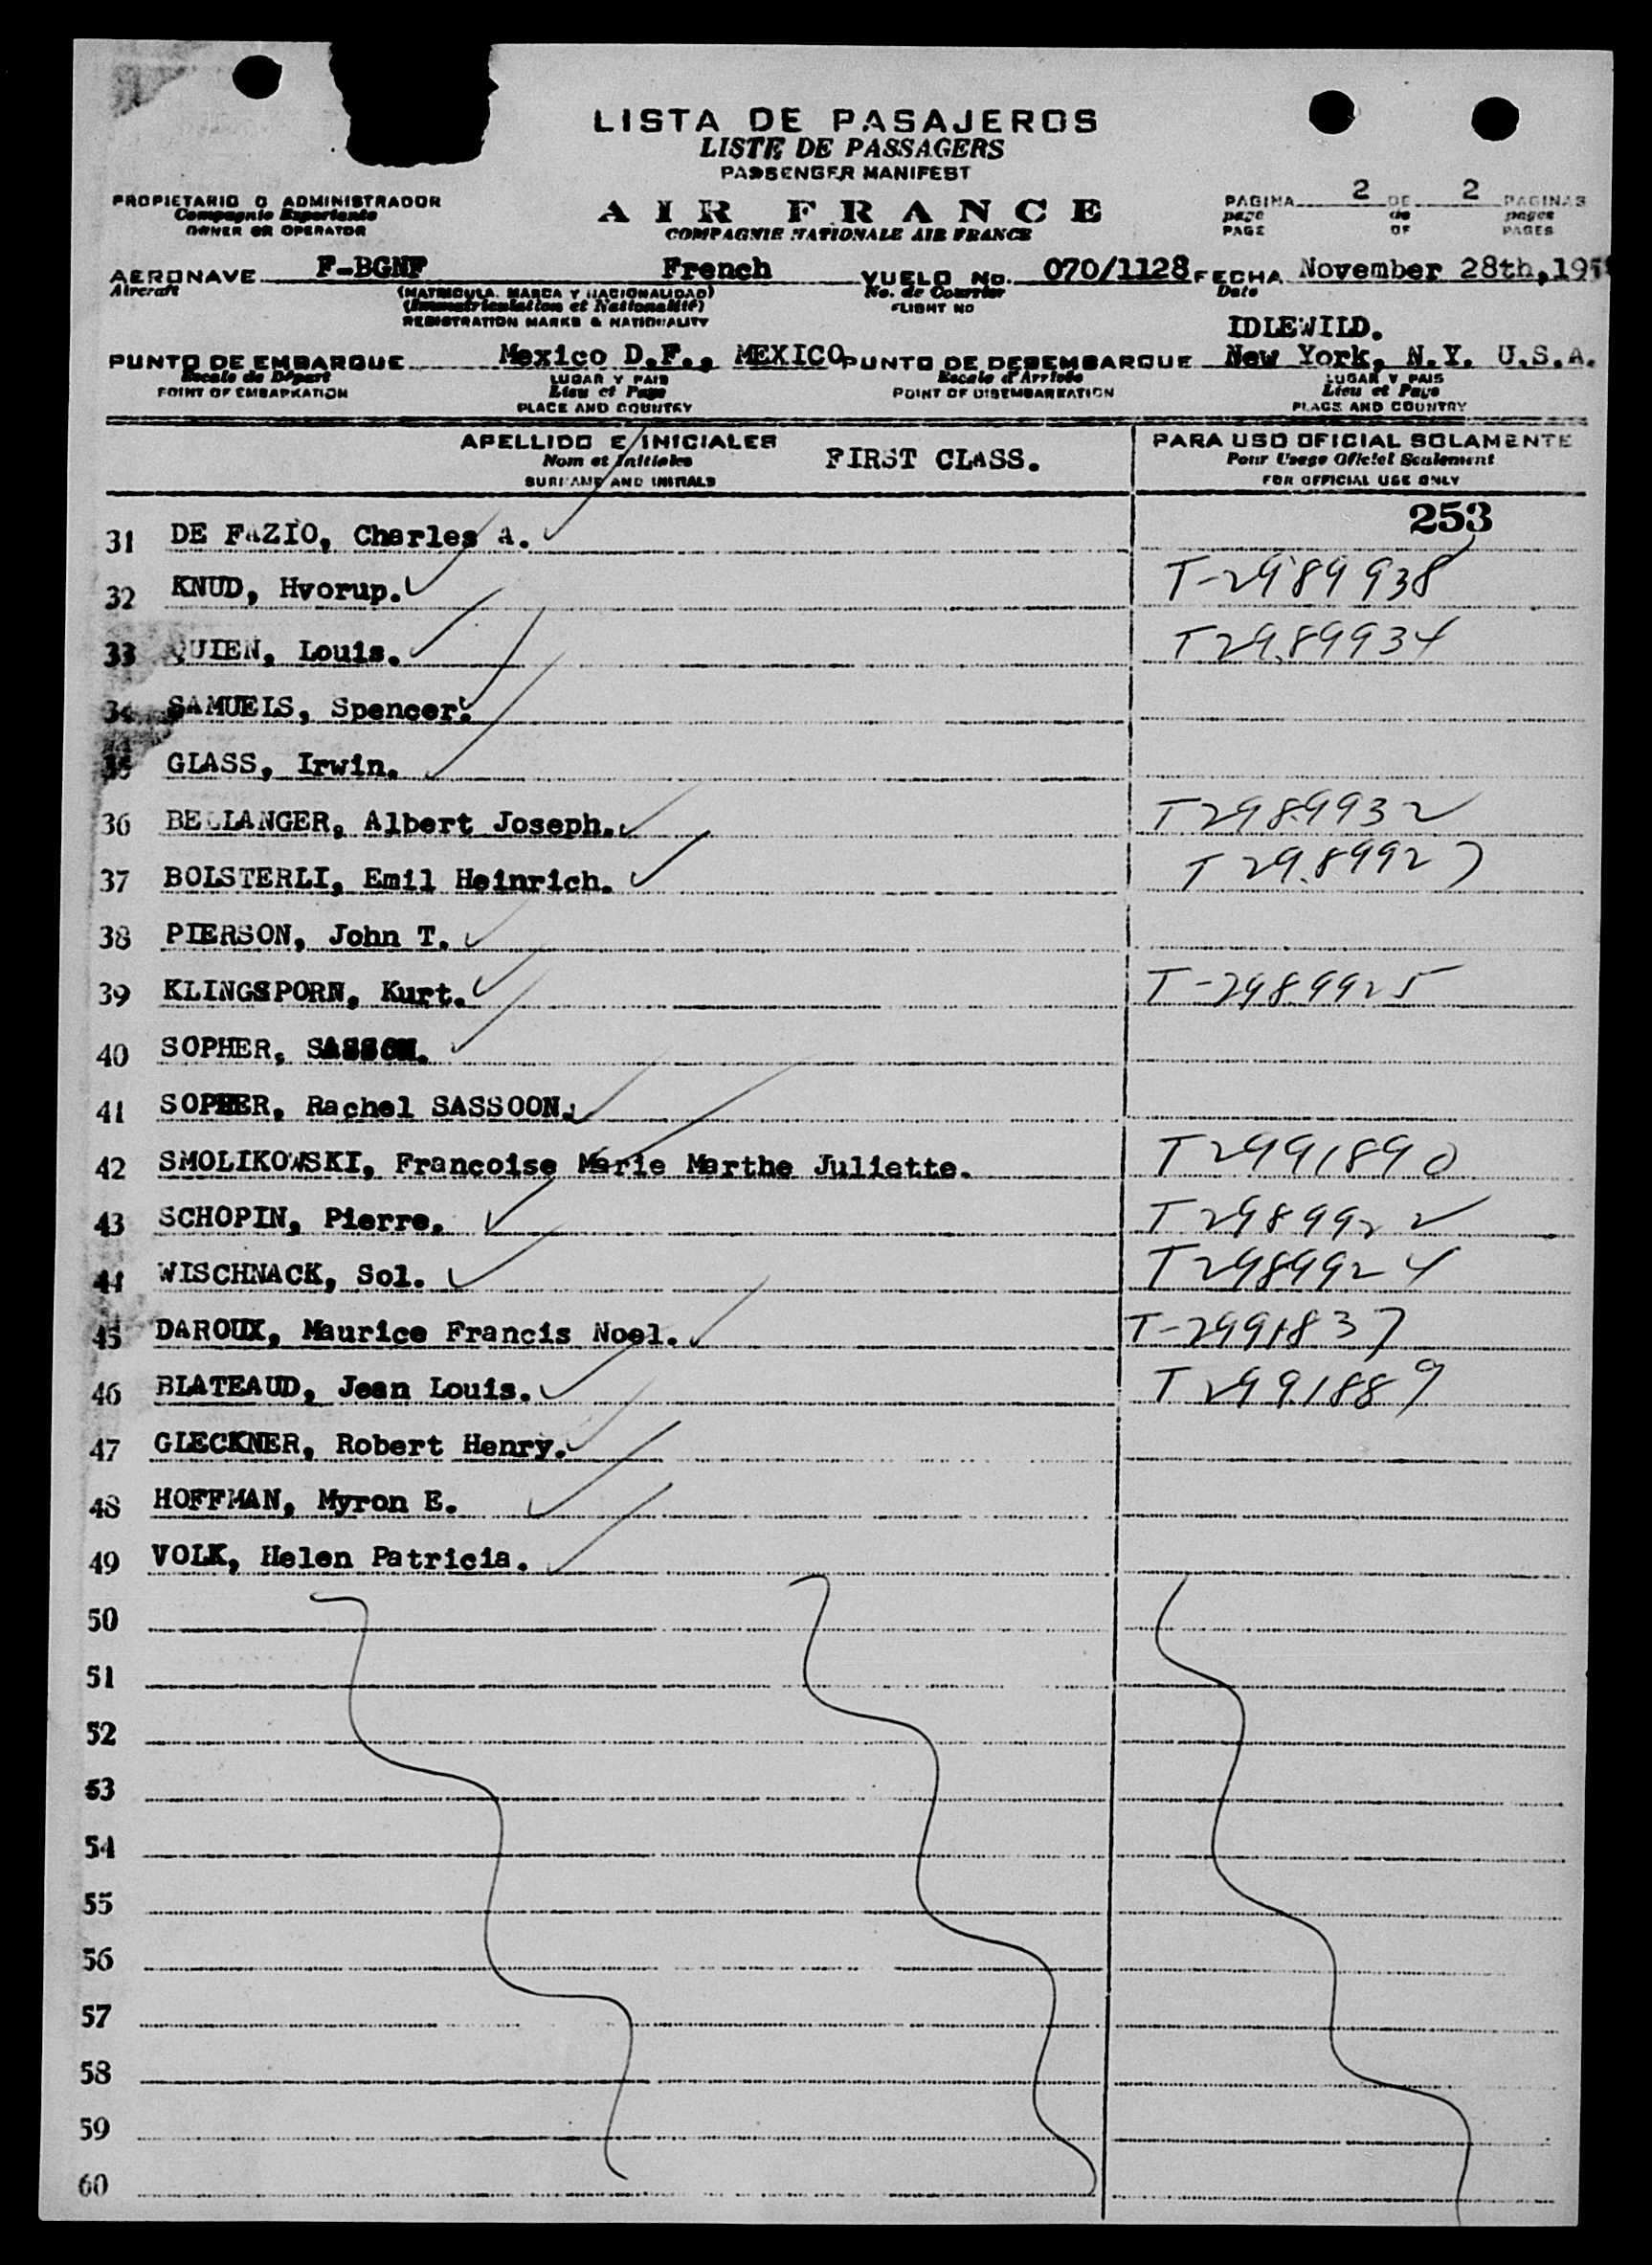 LISTA DE PASAJEROS
LISTE DE PASSAGERS
PASSENGER MANIFEST
PROPIETARIO O ADMINISTRADOR
Compagnie Exportante
OWNER OR OPERATOR
AIR FRANCE
COMPAGNIE NATIONALE AIR FRANCE
PAGINA 2 DE 2 PAGINAS
page de pages
PAGE OF PAGES
AERONAVE F-BGNF French VUELO No. 070/1128 FECHA November 28th,195
Aircraft (MATRICULA, MARCA Y NACIONALIDAD) No. de Courrier Date
(Immatriculation et Nationalité) FLIGHT NO
REGISTRATION MARKS & NATIONALITY
IDLEWILD.
PUNTO DE EMBARQUE Mexico D.F., MEXICO PUNTO DE DESEMBARQUE New York, N.Y. U.S.A.
Escale de Départ LUGAR Y PAIS Escale d'Arrivée LUGAR Y PAIS
POINT OF EMBARKATION Lieu et Pays POINT OF DISEMBARKATION Lieu et Pays
PLACE AND COUNTRY PLACE AND COUNTRY
APELLIDO E INICIALES FIRST CLASS. PARA USO OFICIAL SOLAMENTE
Nom et Initiales Pour Usage Oficiel Seulement
SURNAME AND INITIALS FOR OFFICIAL USE ONLY
253
31 DE FAZIO, Charles A.
32 KNUD, Hvorup. T-2989938
33 QUIEN, Louis. T2989934
34 SAMUELS, Spencer.
35 GLASS, Irwin.
36 BELLANGER, Albert Joseph. T2989932
37 BOLSTERLI, Emil Heinrich. T2989927
38 PIERSON, John T.
39 KLINGSPORN, Kurt. T-2989925
40 SOPHER, SASSON.
41 SOPHER, Rachel SASSOON.
42 SMOLIKOWSKI, Francoise Marie Marthe Juliette. T2991890
43 SCHOPIN, Pierre. T2989922
44 WISCHNACK, Sol. T2989924
45 DAROUX, Maurice Francis Noel. T-2991837
46 BLATEAUD, Jean Louis. T2991889
47 GLECKNER, Robert Henry.
48 HOFFMAN, Myron E.
49 VOLK, Helen Patricia.
50
51
52
53
54
55
56
57
58
59
60